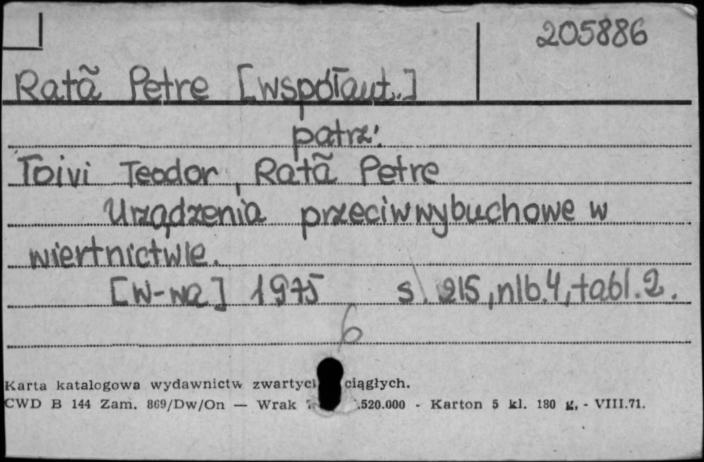 205886
Ratã Petre [współaut.]
patrz:
Toivi Teodor, Ratã Petre
Urządzenia przeciwwybuchowe w
wiertnictwie.
[W-wa] 1975 s. 215, nlb. 4, tabl. 2.
6
Karta katalogowa wydawnictw zwartyc ciągłych.
CWD B 144 Zam. 869/Dw/On — Wrak .520.000 - Karton 5 kl. 180 g, - VIII.71.